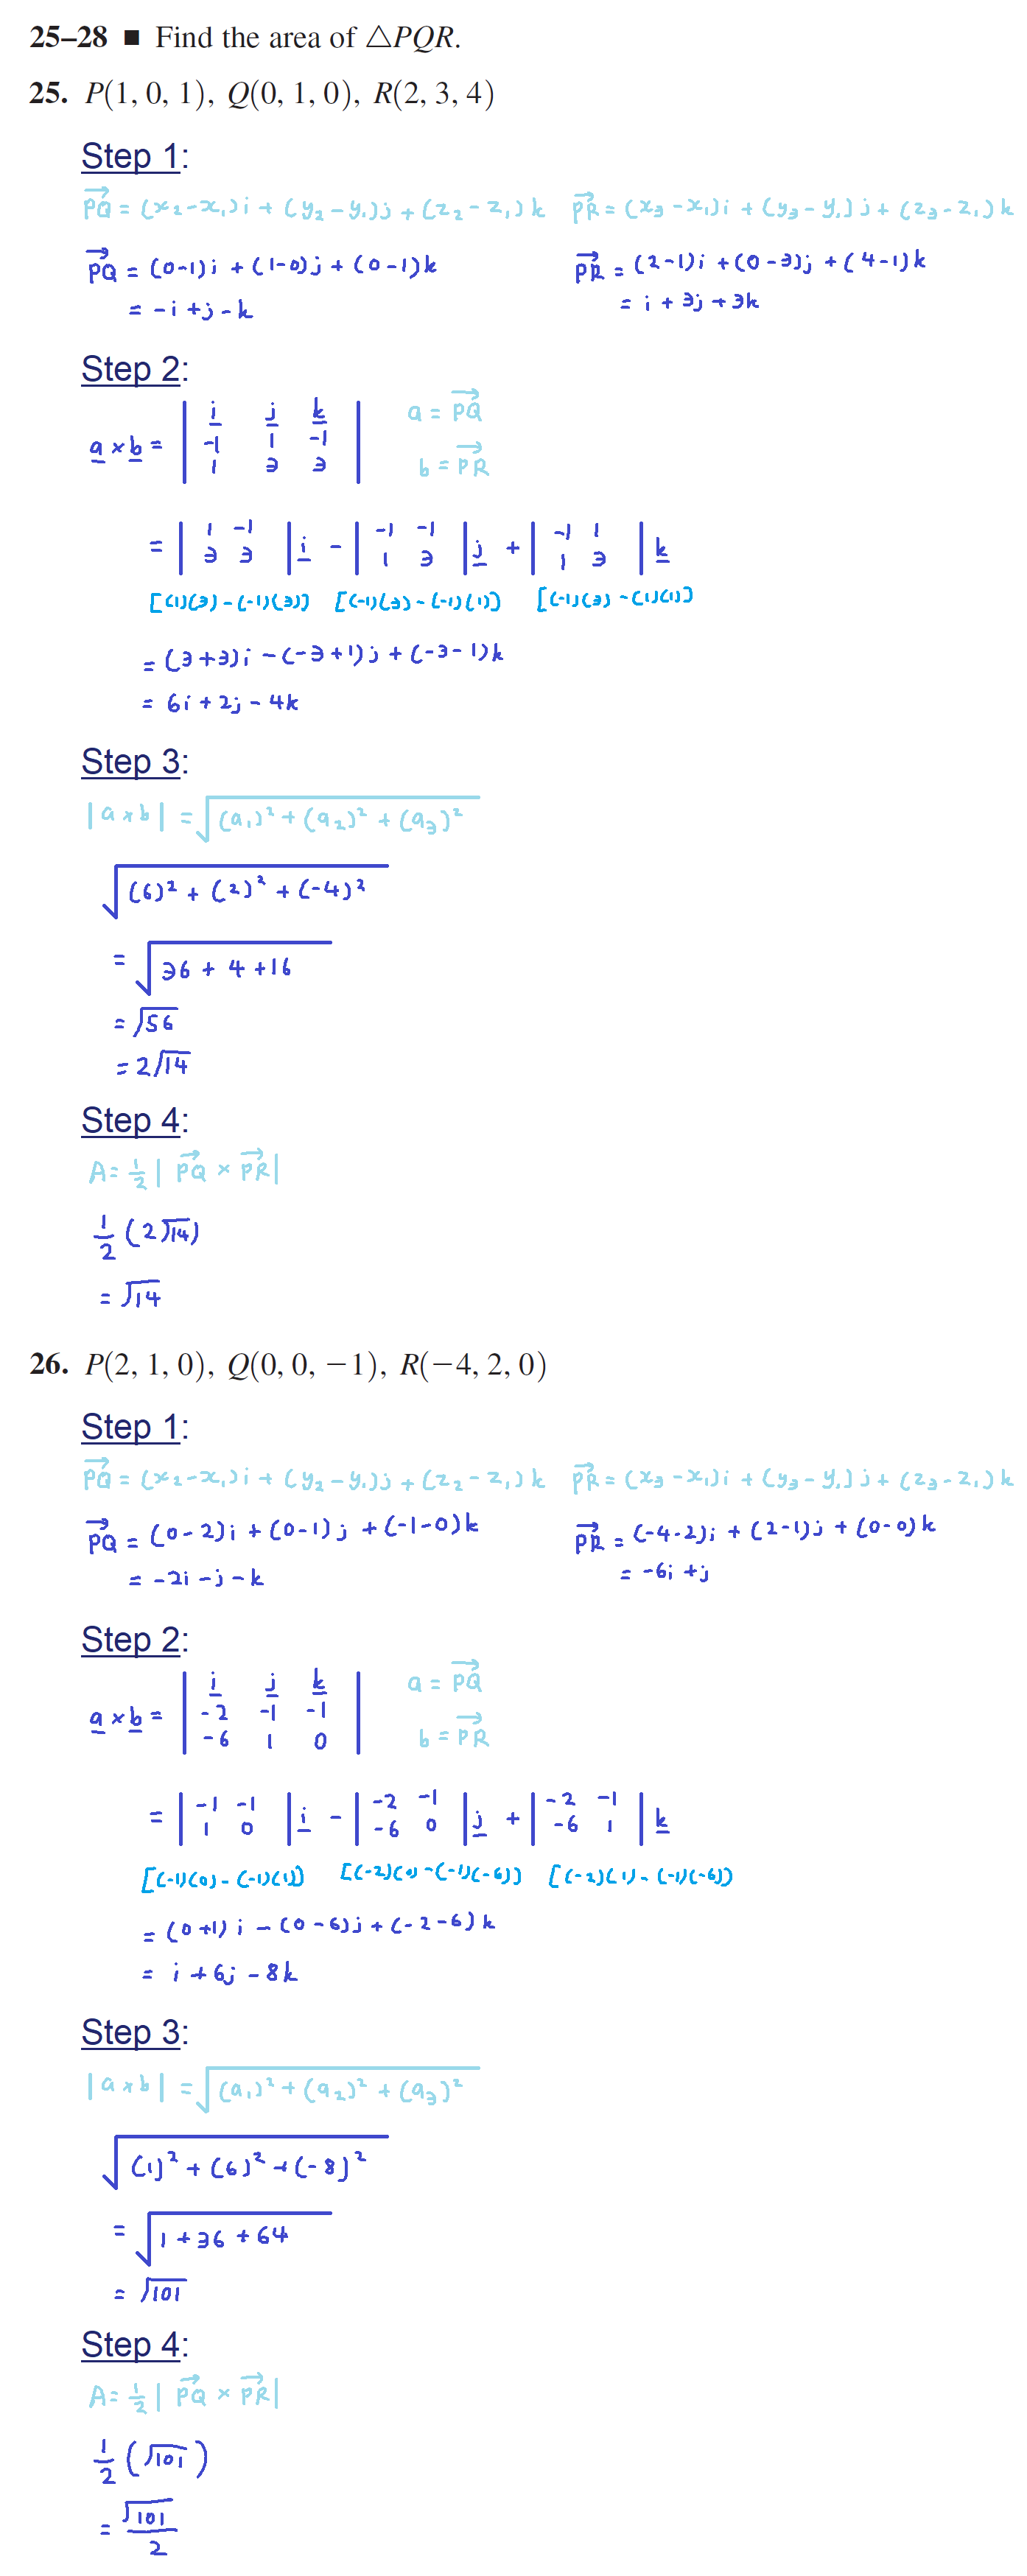 25–28 ■ Find the area of △PQR.
25. P(1, 0, 1), Q(0, 1, 0), R(2, 3, 4)
Step 1:
PQ→ = (x₂-x₁)i + (y₂-y₁)j + (z₂-z₁)k PR→ = (x₃-x₁)i + (y₃-y₁)j + (z₃-z₁)k
PQ→ = (0-1)i + (1-0)j + (0-1)k PR→ = (2-1)i + (0-3)j + (4-1)k
= -i + j - k = i + 3j + 3k
Step 2:
a × b = | i j k | a = PQ→
| -1 1 -1 |
| 1 3 3 | b = PR→
= | 1 -1 | i - | -1 -1 | j + | -1 1 | k
| 3 3 | | 1 3 | | 1 3 |
[(1)(3) - (-1)(3)] [(-1)(3) - (-1)(1)] [(-1)(3) - (1)(1)]
= (3+3)i - (-3+1)j + (-3-1)k
= 6i + 2j - 4k
Step 3:
|a × b| = √(a₁)² + (a₂)² + (a₃)²
√(6)² + (2)² + (-4)²
= √36 + 4 + 16
= √56
= 2√14
Step 4:
A = ½ | PQ→ × PR→ |
1/2 (2√14)
= √14
26. P(2, 1, 0), Q(0, 0, −1), R(−4, 2, 0)
Step 1:
PQ→ = (x₂-x₁)i + (y₂-y₁)j + (z₂-z₁)k PR→ = (x₃-x₁)i + (y₃-y₁)j + (z₃-z₁)k
PQ→ = (0-2)i + (0-1)j + (-1-0)k PR→ = (-4-2)i + (2-1)j + (0-0)k
= -2i - j - k = -6i + j
Step 2:
a × b = | i j k | a = PQ→
| -2 -1 -1 |
| -6 1 0 | b = PR→
= | -1 -1 | i - | -2 -1 | j + | -2 -1 | k
| 1 0 | | -6 0 | | -6 1 |
[(-1)(0) - (-1)(1)] [(-2)(0) - (-1)(-6)] [(-2)(1) - (-1)(-6)]
= (0+1)i - (0-6)j + (-2-6)k
= i + 6j - 8k
Step 3:
|a × b| = √(a₁)² + (a₂)² + (a₃)²
√(1)² + (6)² + (-8)²
= √1 + 36 + 64
= √101
Step 4:
A = ½ | PQ→ × PR→ |
1/2 (√101)
= √101/2